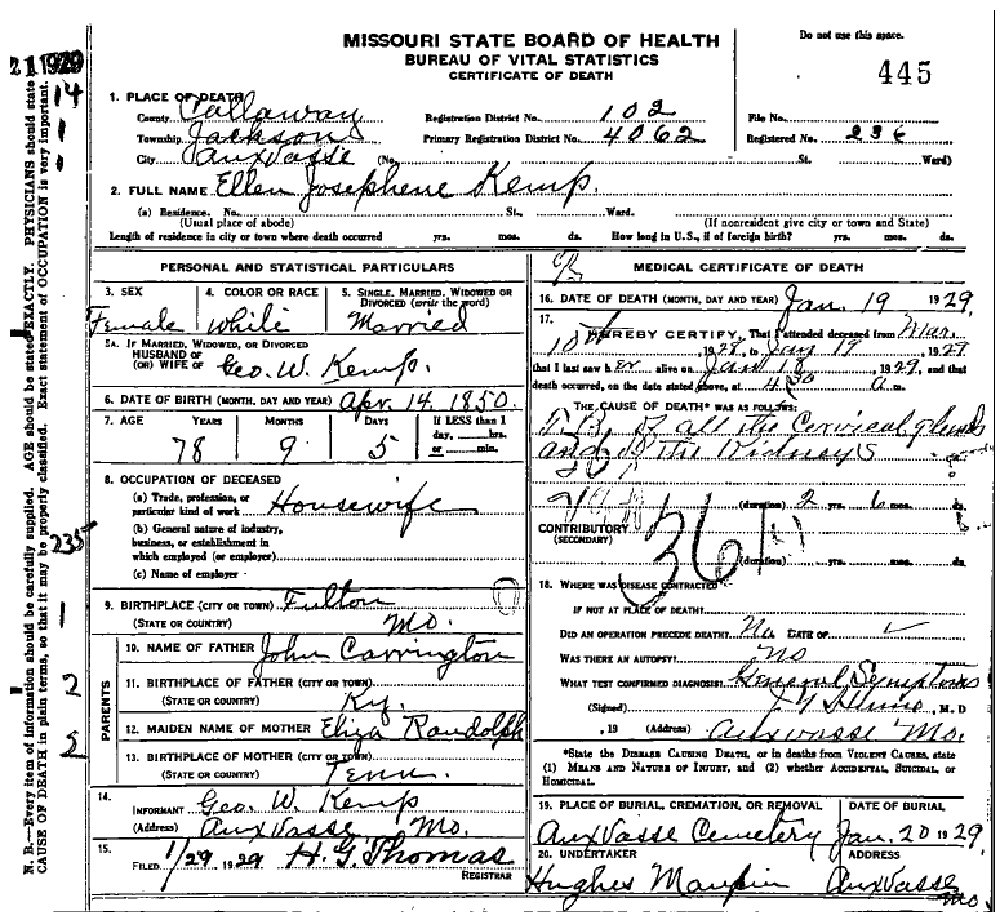 MISSOURI STATE BOARD OF HEALTH
BUREAU OF VITAL STATISTICS
CERTIFICATE OF DEATH
Do not use this space.
445
21 1929
14
1
1
235
1
2
2
N. B.—Every item of information should be carefully supplied. AGE should be stated EXACTLY. PHYSICIANS should state
CAUSE OF DEATH in plain terms, so that it may be properly classified. Exact statement of OCCUPATION is very important.
1. PLACE OF DEATH
County Callaway Registration District No. 102 File No.
Township Jackson Primary Registration District No. 4062 Registered No. 236
City AuxVasse (No. St. Ward)
2. FULL NAME Ellen Josephene Kemp.
(a) Residence. No. St., Ward.
(Usual place of abode) (If nonresident give city or town and State)
Length of residence in city or town where death occurred yrs. mos. ds. How long in U.S., if of foreign birth? yrs. mos. ds.
PERSONAL AND STATISTICAL PARTICULARS
3. SEX 4. COLOR OR RACE 5. SINGLE, MARRIED, WIDOWED OR
DIVORCED (write the word)
Female White Married
5A. IF MARRIED, WIDOWED, OR DIVORCED
HUSBAND OF
(OR) WIFE OF Geo. W. Kemp.
6. DATE OF BIRTH (MONTH, DAY AND YEAR) Apr. 14. 1850
7. AGE YEARS MONTHS DAYS If LESS than 1
day, hrs.
or min.
78 9 5
8. OCCUPATION OF DECEASED
(a) Trade, profession, or
particular kind of work Housewife
(b) General nature of industry,
business, or establishment in
which employed (or employer)
(c) Name of employer
9. BIRTHPLACE (CITY OR TOWN) Fulton
(STATE OR COUNTRY) Mo.
PARENTS
10. NAME OF FATHER John Carrington
11. BIRTHPLACE OF FATHER (CITY OR TOWN)
(STATE OR COUNTRY) Ky.
12. MAIDEN NAME OF MOTHER Eliza Randolph
13. BIRTHPLACE OF MOTHER (CITY OR TOWN)
(STATE OR COUNTRY) Tenn.
14.
INFORMANT Geo. W. Kemp
(Address) AuxVasse Mo.
15.
FILED 1/29 1929 H. G. Thomas
REGISTRAR
MEDICAL CERTIFICATE OF DEATH
16. DATE OF DEATH (MONTH, DAY AND YEAR) Jan. 19 1929.
17.
I HEREBY CERTIFY, That I attended deceased from Mar.
10th, 1928, to Jan 19, 1929
that I last saw her alive on Jan 18, 1929, and that
death occurred, on the date stated above, at 4:30 a.m.
THE CAUSE OF DEATH* WAS AS FOLLOWS:
T. B. of all the Cervical glands
and of the Kidneys
(duration) 2 yrs. 6 mos. ds.
CONTRIBUTORY
(SECONDARY)
36
(duration) yrs. mos. ds.
18. WHERE WAS DISEASE CONTRACTED
IF NOT AT PLACE OF DEATH?
DID AN OPERATION PRECEDE DEATH? No DATE OF
WAS THERE AN AUTOPSY? no
WHAT TEST CONFIRMED DIAGNOSIS? General Symptoms
(Signed) , M. D
, 19 (Address) Auxvasse Mo.
*State the DISEASE CAUSING DEATH, or in deaths from VIOLENT CAUSES, state
(1) MEANS AND NATURE OF INJURY, and (2) whether ACCIDENTAL, SUICIDAL, or
HOMICIDAL.
19. PLACE OF BURIAL, CREMATION, OR REMOVAL DATE OF BURIAL
AuxVasse Cemetery Jan. 20 1929.
20. UNDERTAKER ADDRESS
Hughes Maupin AuxVasse
Mo.